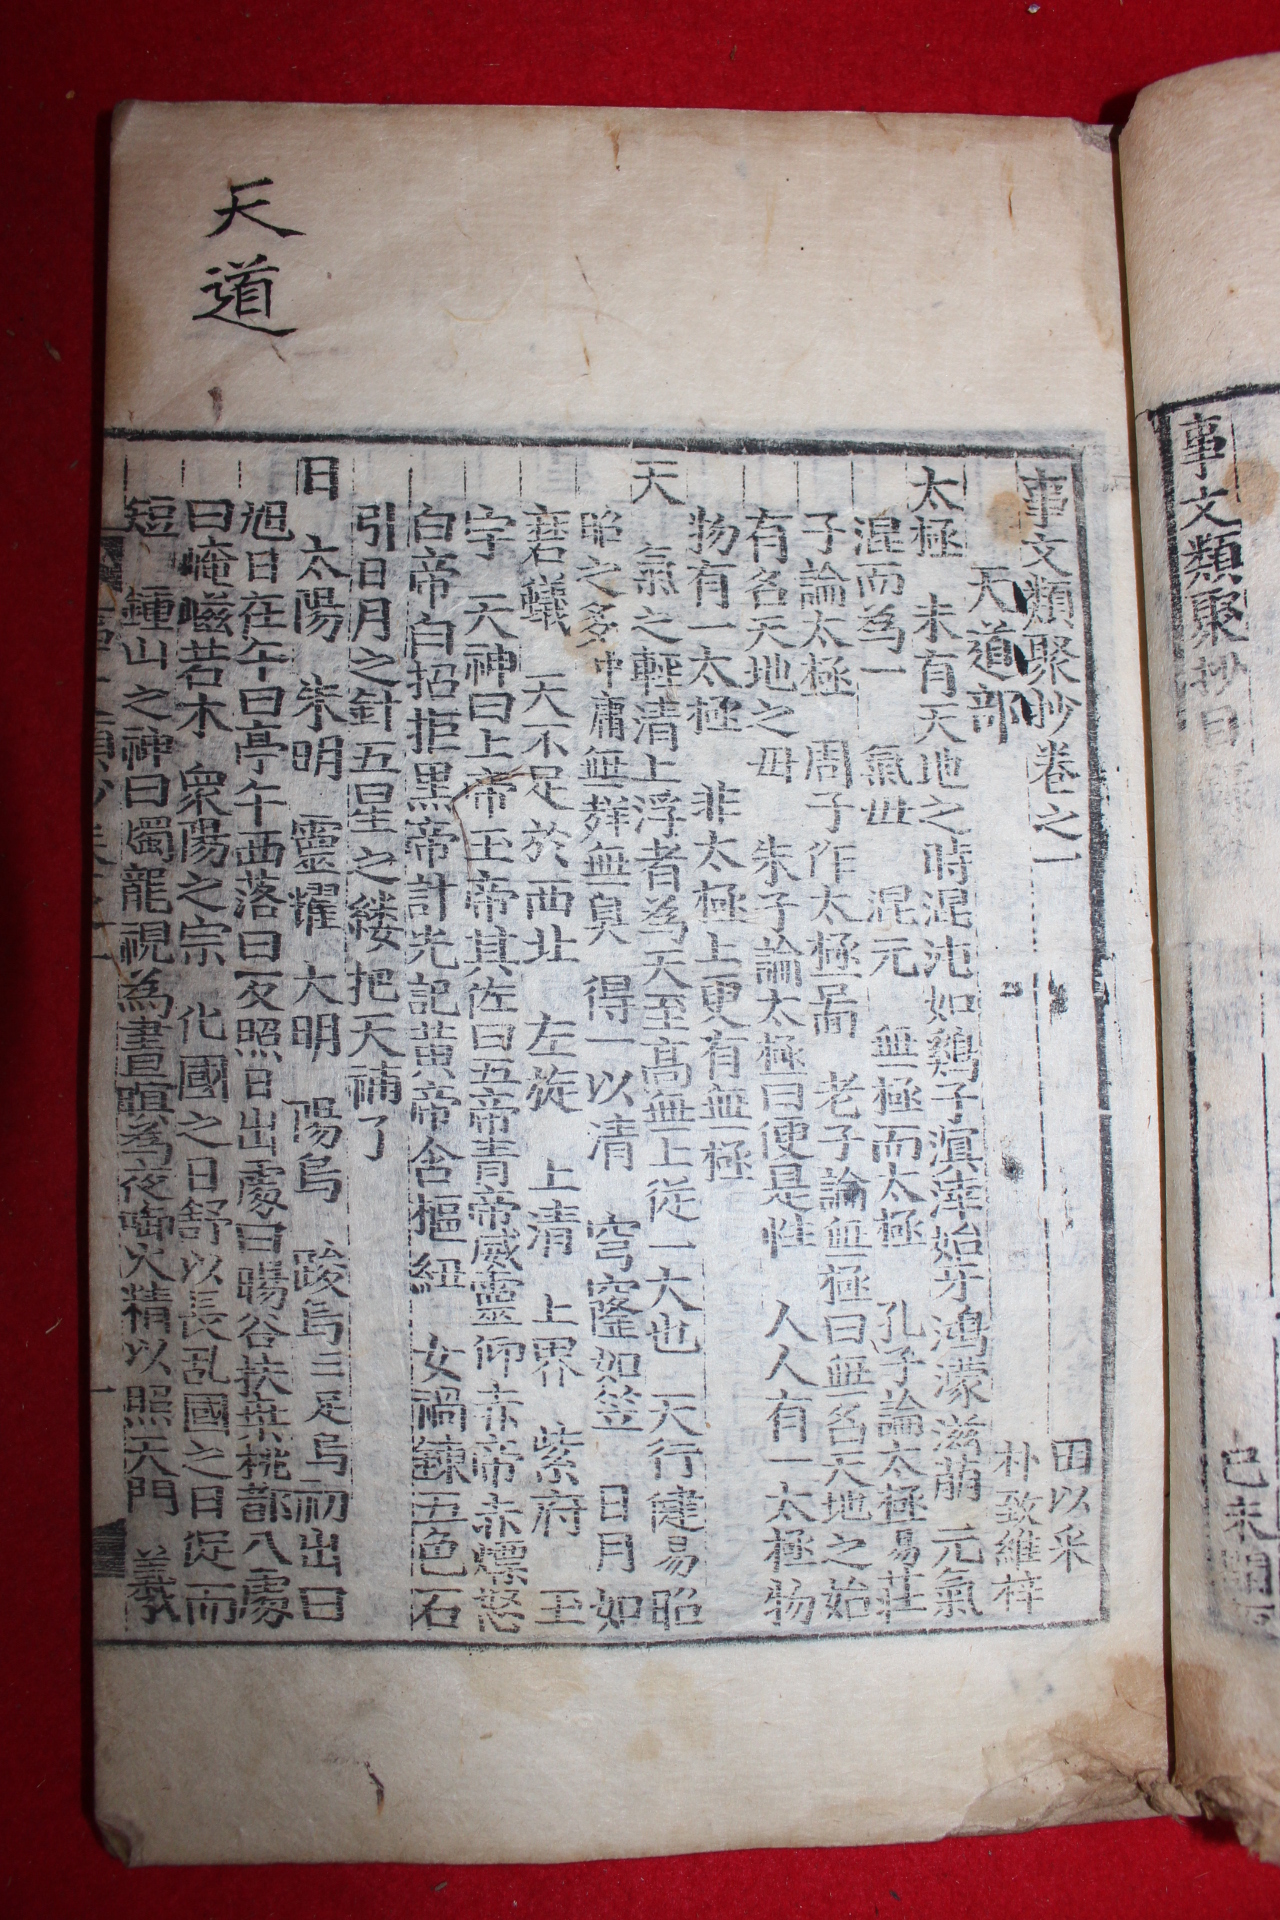 天道
事文類聚目
己未開
事文類聚抄卷之一
田以采
天道部
朴致維梓
太極 未有天地之時混沌如鷄子溟涬始牙鴻濛滋萠 元氣
混而爲一 氣毋 混元 無極而太極 孔子論太極易莊
子論太極 周子作太極啚 老子論無極曰無名天地之始
有名天地之毋 朱子論太極曰便是性 人人有一太極物
物有一太極 非太極上更有無極
天 氣之輕清上浮者為天至高無上従一大也 天行健易昭
昭之多中庸無聲無臭 得一以清 穹窿如笠 日月如
磨蟻 天不足於西北 左旋 上清 上界 紫府 玉
宇 天神曰上帝玉帝其佐曰五帝青帝威靈仰赤帝赤熛怒
白帝白招拒黒帝計光記黄帝含樞紐 女禍鍊五色石
引日月之針五星之縷把天補了
日 太陽 朱明 靈耀 大明 陽烏 踆烏三足烏初出曰
旭日在午曰亭午西落曰反照日出處曰暘谷扶桒桃都八處
曰崦嵫若木 衆陽之宗 化國之日舒以長乱國之日促而
短 鍾山之神曰燭龍視為晝瞑為夜啣火精以照天門 羲